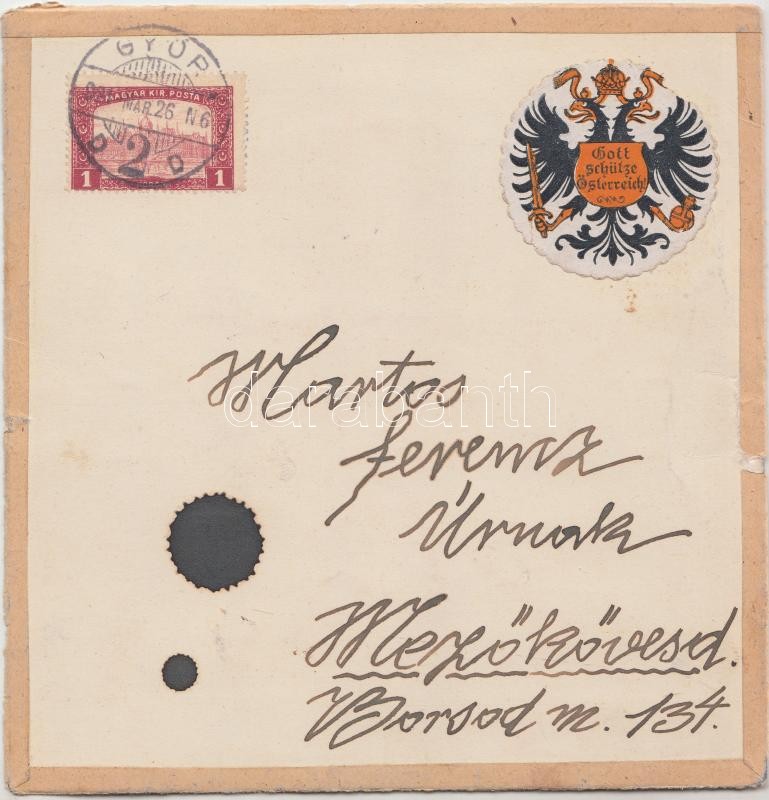 GYŐR
MAR.26 N6
2
D D
MAGYAR KIR. POSTA
1 1
Gott
schütze
Österreich!
Martos
Ferencz
Úrnak
Mezőkövesd.
Borsod m. 134.
darabanth